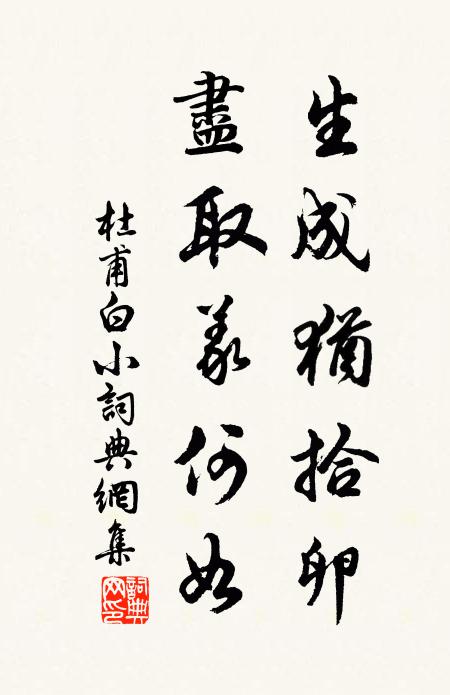 生成猶拾卵
盡取義何如
杜甫白小詞典網集
詞典网印